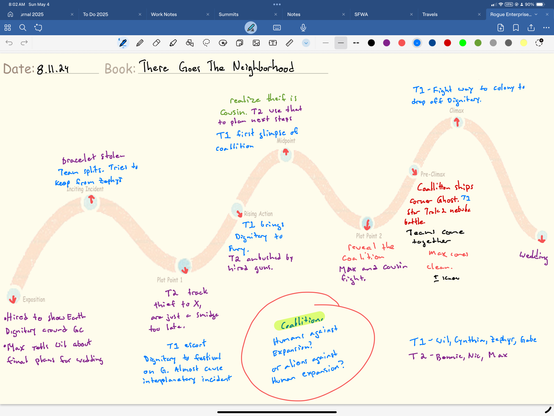 8:02 AM Sun May 4
90%
Journal 2025
To Do 2025
Work Notes
Summits
Notes
SFWA
Travels
Rogue Enterprise...
Date: 8.11.24 Book: There Goes The Neighborhood
realize theif is
cousin. T2 use that
to plan next steps
T1 first glimpse of
coallition
Midpoint
T1 - Fight way to colony to
drop off Dignitary.
Climax
bracelet stolen
Team splits. Tries to
keep from Zephyr
Inciting Incident
Pre-Climax
Coallition ships
corner Ghost. T1
Star Trek 2 nebula
battle.
Teams come
together
Max comes
clean.
I know
Rising Action
T1 brings
Dignitary to
Fury.
T2 ambushed by
hired guns.
Plot Point 2
reveal the
Coalition
Max and cousin
fight.
wedding
Plot Point 1
T2 track
thief to X,
are just a smidge
too late.
T1 escort
Dignitary to festival
on G. Almost cause
interplanetary incident
Exposition
•Hired to show Earth
Dignitary around GC
•Max tells Wil about
final plans for wedding
Coallition:
Humans against
expansion?
or aliens against
Human expansion?
T1 - Wil, Cynthia, Zephyr, Gabe
T2 - Bennie, Nic, Max